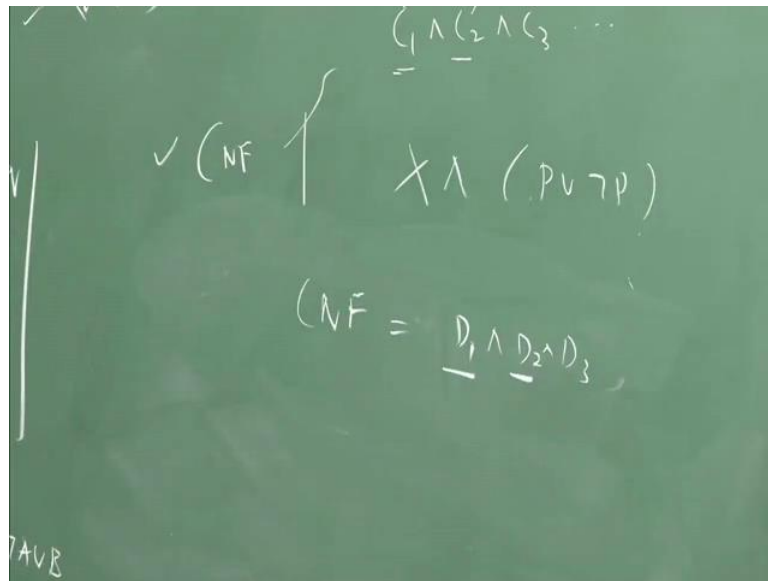 C₁ ∧ C₂ ∧ C₃ ...
✓ CNF
X ∧ (P ∨ ¬P)
CNF = D₁ ∧ D₂ ∧ D₃
¬A∨B